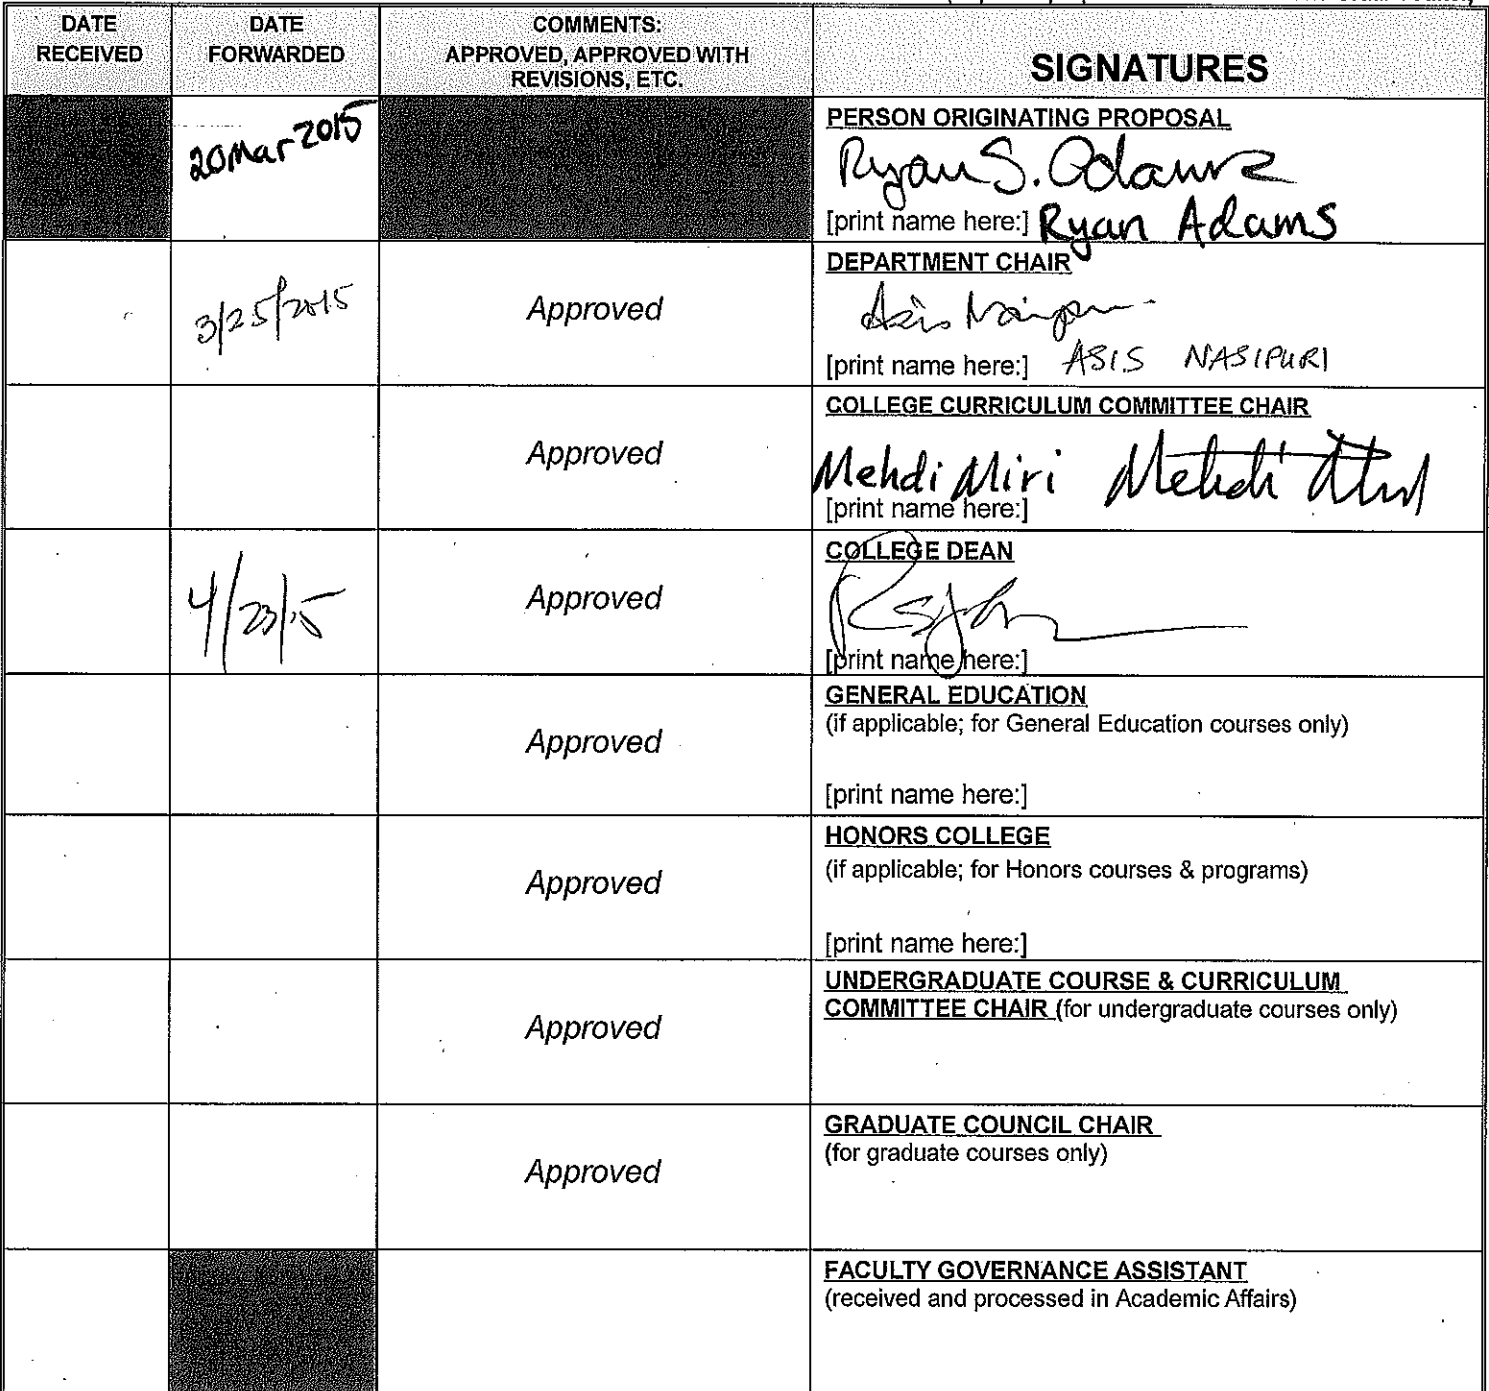 DATE RECEIVED
DATE FORWARDED
COMMENTS:
APPROVED, APPROVED WITH
REVISIONS, ETC.
SIGNATURES
20Mar2015
PERSON ORIGINATING PROPOSAL
Ryan S. Adams
[print name here:] Ryan Adams
3/25/2015
Approved
DEPARTMENT CHAIR
[print name here:] ASIS NASIPURI
Approved
COLLEGE CURRICULUM COMMITTEE CHAIR
Mehdi Miri Mehdi
[print name here:]
4/23/15
Approved
COLLEGE DEAN
[print name here:]
Approved
GENERAL EDUCATION
(if applicable; for General Education courses only)
[print name here:]
Approved
HONORS COLLEGE
(if applicable; for Honors courses & programs)
[print name here:]
Approved
UNDERGRADUATE COURSE & CURRICULUM
COMMITTEE CHAIR (for undergraduate courses only)
Approved
GRADUATE COUNCIL CHAIR
(for graduate courses only)
FACULTY GOVERNANCE ASSISTANT
(received and processed in Academic Affairs)